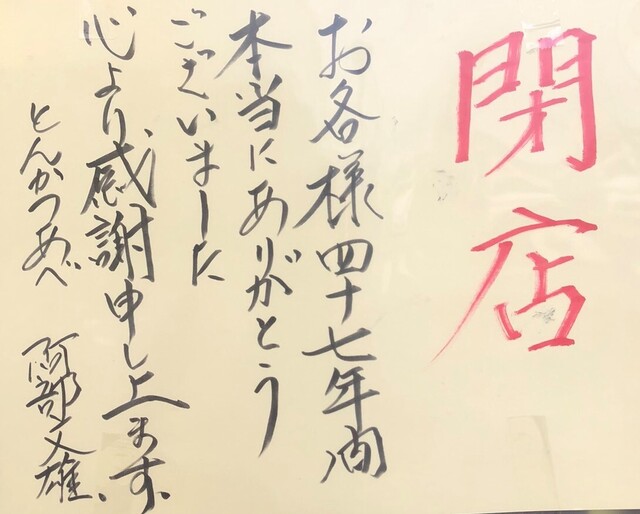 閉店
お客様四十七年間
本当にありがとう
ございました
心より感謝申し上ます。
とんかつあべ 阿部文雄